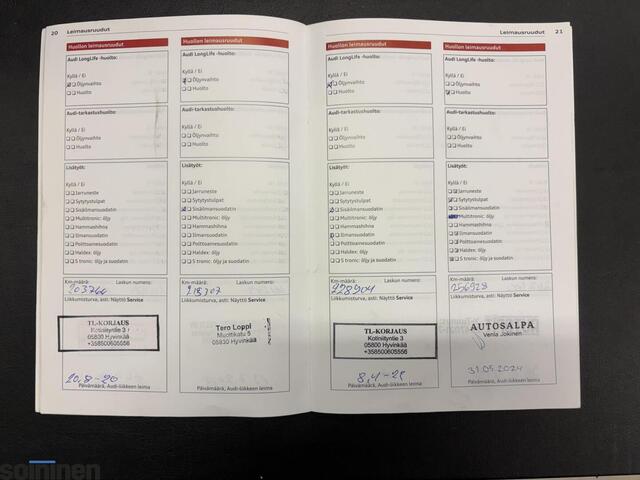 20 Leimausruudut
Huollon leimausruudut
Audi LongLife -huolto:
Kyllä / Ei
Öljynvaihto
Huolto
Audi-tarkastushuolto:
Kyllä / Ei
Öljynvaihto
Huolto
Lisätyöt:
Kyllä / Ei
Jarruneste
Sytytystulpat
Sisäilmansuodatin
Multitronic: öljy
Hammashihna
Ilmansuodatin
Polttoainesuodatin
Haldex: öljy
S tronic: öljy ja suodatin
Km-määrä: Laskun numero:
203766
Liikkumisturva, asti: Näyttö Service
TL-KORJAUS
Kotiniityntie 3
05830 Hyvinkää
+358500605556
20,8-20
Päivämäärä, Audi-liikkeen leima
Huollon leimausruudut
Audi LongLife -huolto:
Kyllä / Ei
Öljynvaihto
Huolto
Audi-tarkastushuolto:
Kyllä / Ei
Öljynvaihto
Huolto
Lisätyöt:
Kyllä / Ei
Jarruneste
Sytytystulpat
Sisäilmansuodatin
Multitronic: öljy
Hammashihna
Ilmansuodatin
Polttoainesuodatin
Haldex: öljy
S tronic: öljy ja suodatin
Km-määrä: Laskun numero:
218707
Liikkumisturva, asti: Näyttö Service
Tero Loppi
Muottikatu 5
05830 Hyvinkää
Päivämäärä, Audi-liikkeen leima
Leimausruudut 21
Huollon leimausruudut
Audi LongLife -huolto:
Kyllä / Ei
Öljynvaihto
Huolto
Audi-tarkastushuolto:
Kyllä / Ei
Öljynvaihto
Huolto
Lisätyöt:
Kyllä / Ei
Jarruneste
Sytytystulpat
Sisäilmansuodatin
Multitronic: öljy
Hammashihna
Ilmansuodatin
Polttoainesuodatin
Haldex: öljy
S tronic: öljy ja suodatin
Km-määrä: Laskun numero:
228904
Liikkumisturva, asti: Näyttö Service
TL-KORJAUS
Kotiniityntie 3
05800 Hyvinkää
+358500605556
Päivämäärä, Audi-liikkeen leima
Huollon leimausruudut
Audi LongLife -huolto:
Kyllä / Ei
Öljynvaihto
Huolto
Audi-tarkastushuolto:
Kyllä / Ei
Öljynvaihto
Huolto
Lisätyöt:
Kyllä / Ei
Jarruneste
Sytytystulpat
Sisäilmansuodatin
Multitronic: öljy
Hammashihna
Ilmansuodatin
Polttoainesuodatin
Haldex: öljy
S tronic: öljy ja suodatin
Km-määrä: Laskun numero:
256928
Liikkumisturva, asti: Näyttö Service
AUTOSALPA
Venla Jokinen
31.05.2024
Päivämäärä, Audi-liikkeen leima
soininen